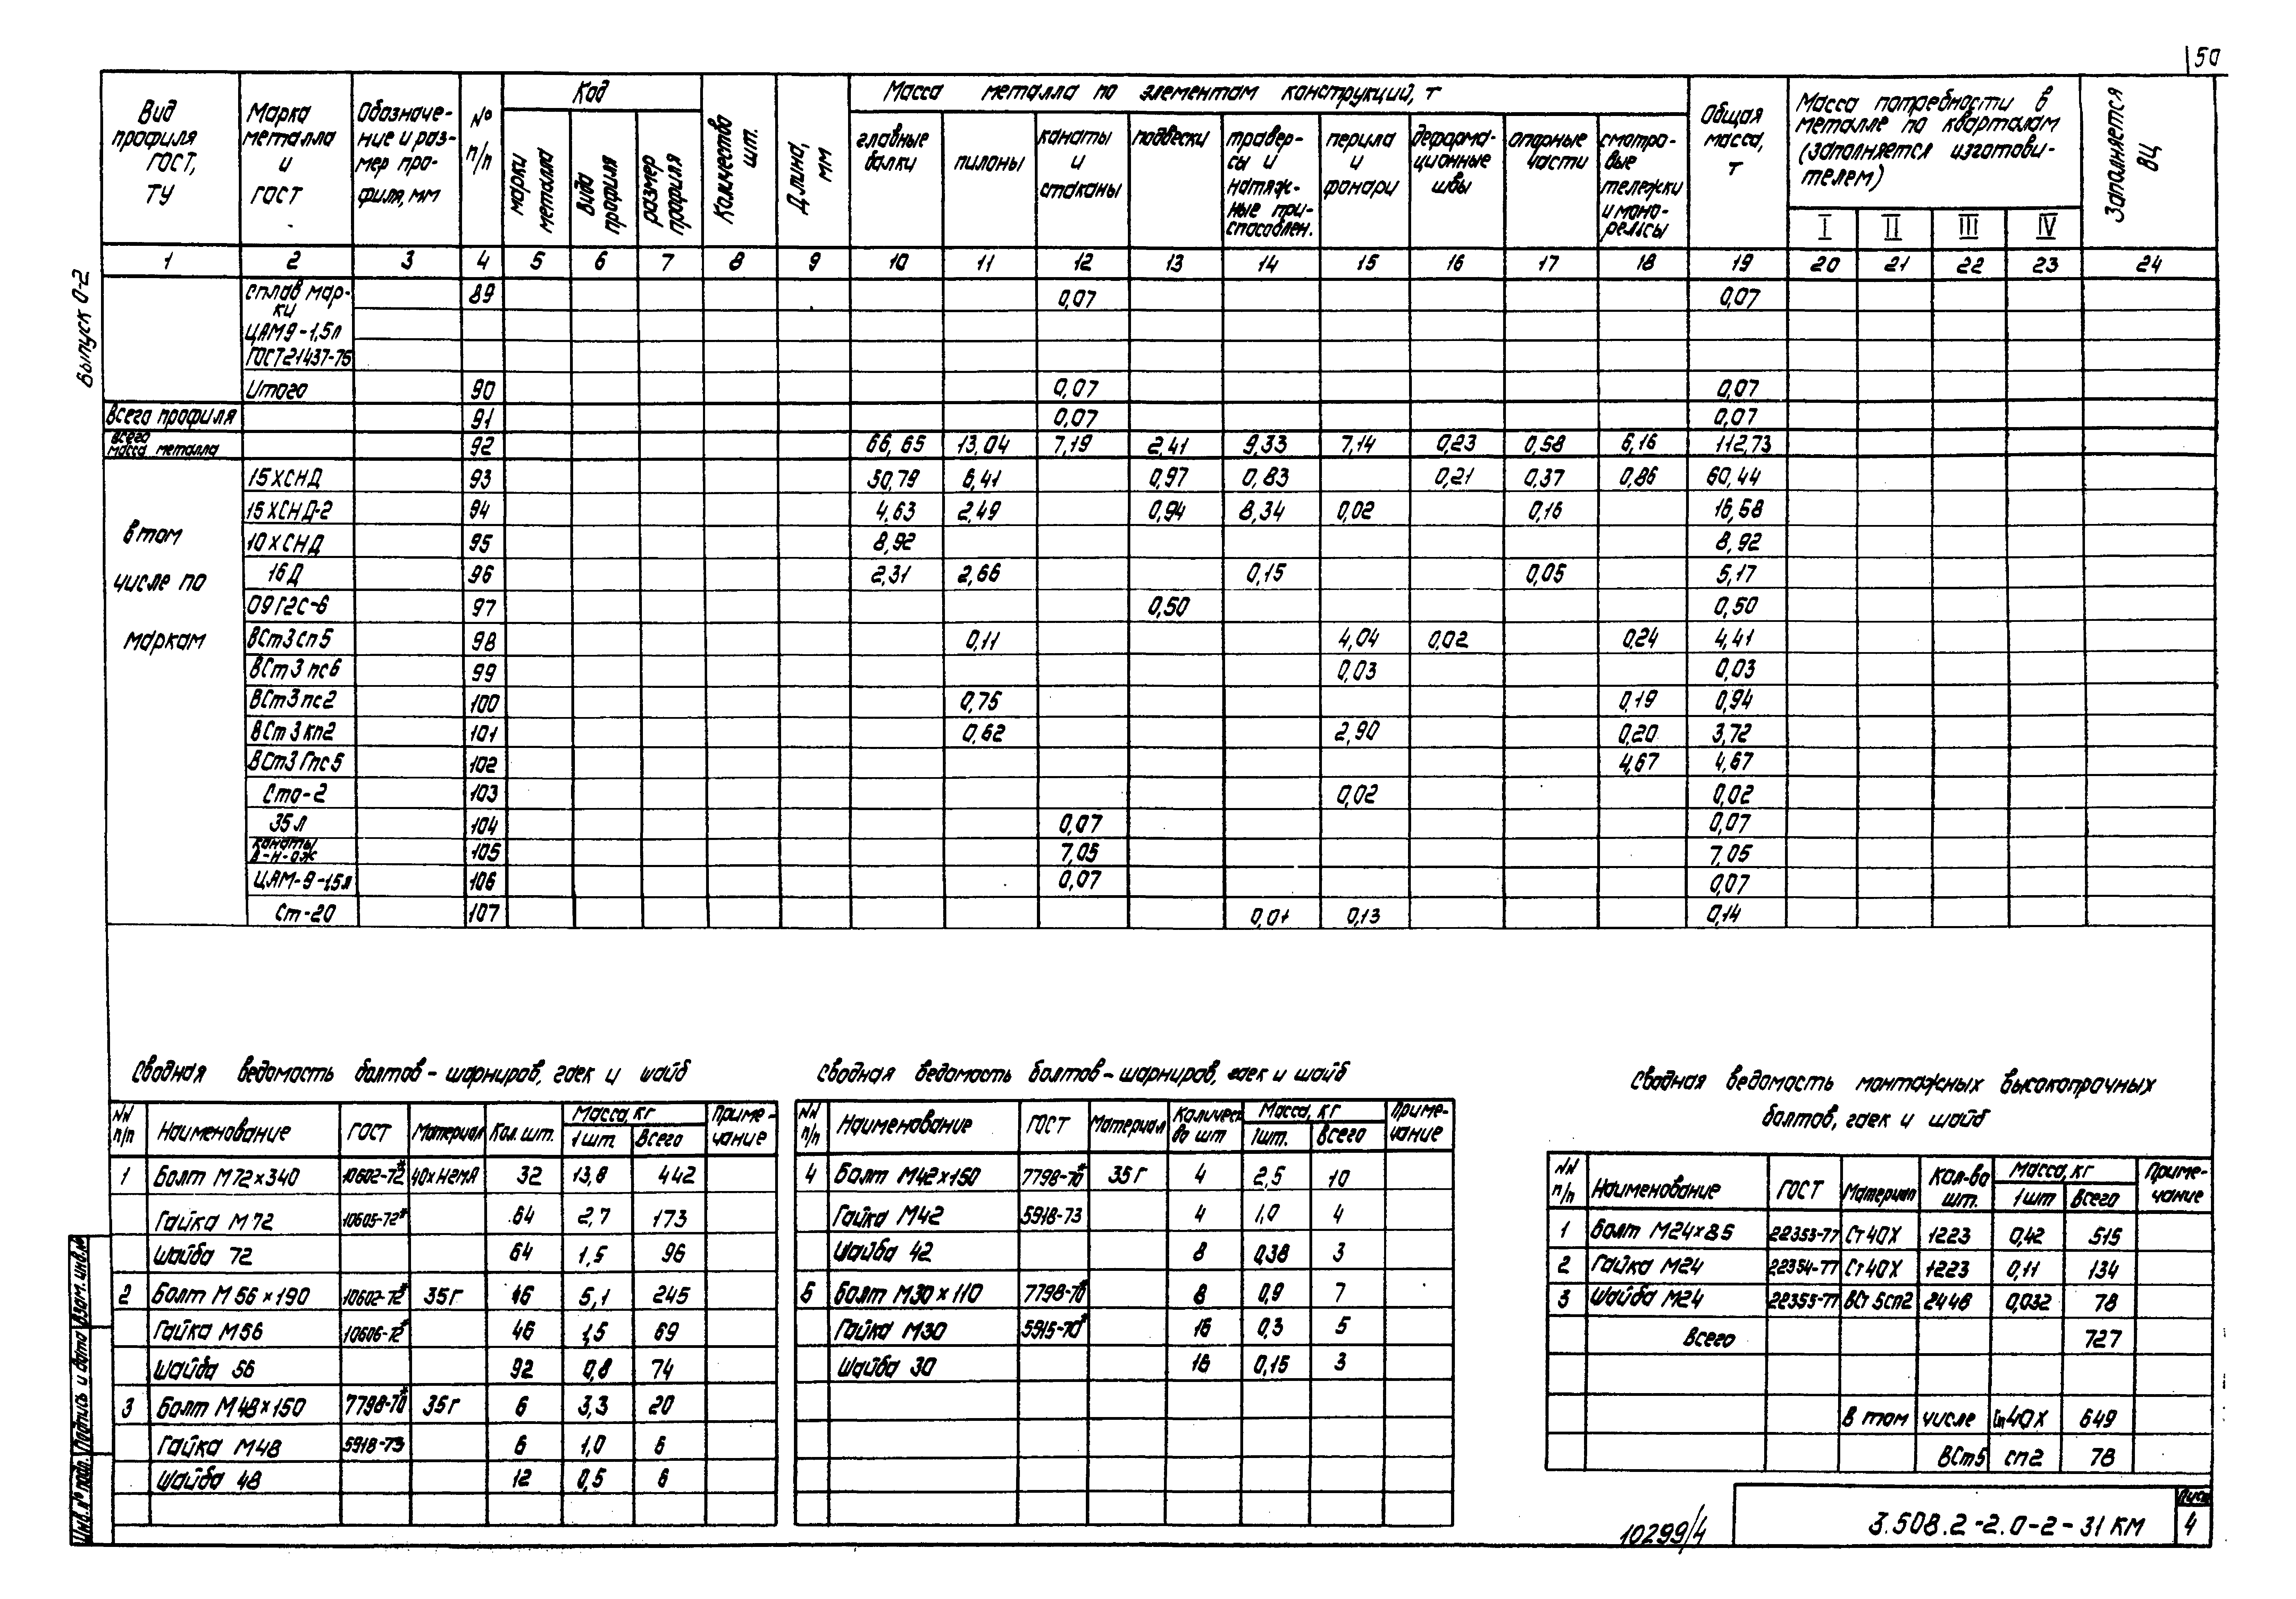 50
Выпуск 0-2
Вид профиля ГОСТ, ТУ
Марка металла и ГОСТ
Обозначе-ние и раз-мер про-филя, мм
№ п/п
Код
марки металла
вида профиля
размер профиля
Количество шт.
Длина, мм
Масса металла по элементам конструкций, т
главные балки
пилоны
канаты и стаканы
подвески
травер-сы и натяж-ные при-способлен.
перила и фонари
деформа-ционные швы
опорные части
смотро-вые тележки и моно-рельсы
Общая масса, т
Масса потребности в металле по кварталам (заполняется изготови-телем)
I II III IV
Заполняется ВЦ
1 2 3 4 5 6 7 8 9 10 11 12 13 14 15 16 17 18 19 20 21 22 23 24
Сплав мар- 89 0,07 0,07
ки
ЦАМ9-1,5л
ГОСТ21437-75
Итого 90 0,07 0,07
Всего профиля 91 0,07 0,07
Всего масса металла 92 66,65 13,04 7,19 2,41 9,33 7,14 0,23 0,58 6,16 112,73
в том числе по маркам
15ХСНД 93 50,79 6,41 0,97 0,83 0,21 0,37 0,86 60,44
15ХСНД-2 94 4,63 2,49 0,94 8,34 0,02 0,16 16,58
10ХСНД 95 8,92 8,92
16Д 96 2,31 2,66 0,15 0,05 5,17
09Г2С-6 97 0,50 0,50
ВСт3сп5 98 0,11 4,04 0,02 0,24 4,41
ВСт3пс6 99 0,03 0,03
ВСт3пс2 100 0,75 0,19 0,94
ВСт3кп2 101 0,62 2,90 0,20 3,72
ВСт3Гпс5 102 4,67 4,67
Сто-2 103 0,02 0,02
35Л 104 0,07 0,07
канаты В-Н-ОЖ 105 7,05 7,05
ЦАМ-9-1,5л 106 0,07 0,07
Ст-20 107 0,01 0,13 0,14
Сводная ведомость болтов-шарниров, гаек и шайб
NN п/п Наименование ГОСТ Материал Кол. шт. Масса, кг 1 шт. Всего Приме-чание
1 Болт М72×340 10602-72* 40ХН2МА 32 13,8 442
Гайка М72 10605-72* 64 2,7 173
Шайба 72 64 1,5 96
2 Болт М56×190 10602-72* 35Г 46 5,1 245
Гайка М56 10606-72* 46 1,5 69
Шайба 56 92 0,8 74
3 Болт М48×150 7798-70* 35Г 6 3,3 20
Гайка М48 5918-73 6 1,0 6
Шайба 48 12 0,5 6
Сводная ведомость болтов-шарниров, гаек и шайб
NN п/п Наименование ГОСТ Материал Количест-во шт Масса, кг 1шт. Всего Приме-чание
4 Болт М42×150 7798-70* 35Г 4 2,5 10
Гайка М42 5918-73 4 1,0 4
Шайба 42 8 0,38 3
5 Болт М30×110 7798-70* 8 0,9 7
Гайка М30 5915-70* 16 0,3 5
Шайба 30 16 0,15 3
Сводная ведомость монтажных высокопрочных
болтов, гаек и шайб
NN п/п Наименование ГОСТ Материал Кол-во шт. Масса, кг 1шт Всего Приме-чание
1 Болт М24×85 22353-77 Ст40Х 1223 0,42 515
2 Гайка М24 22354-77 Ст40Х 1223 0,11 134
3 Шайба М24 22355-77 ВСт5сп2 2446 0,032 78
Всего 727
в том числе Ст40Х 649
ВСт5 сп2 78
Инв.№ подл. Подпись и дата Взам. инв.№
10299/4
3.508.2-2.0-2-31 КМ
Лист
4